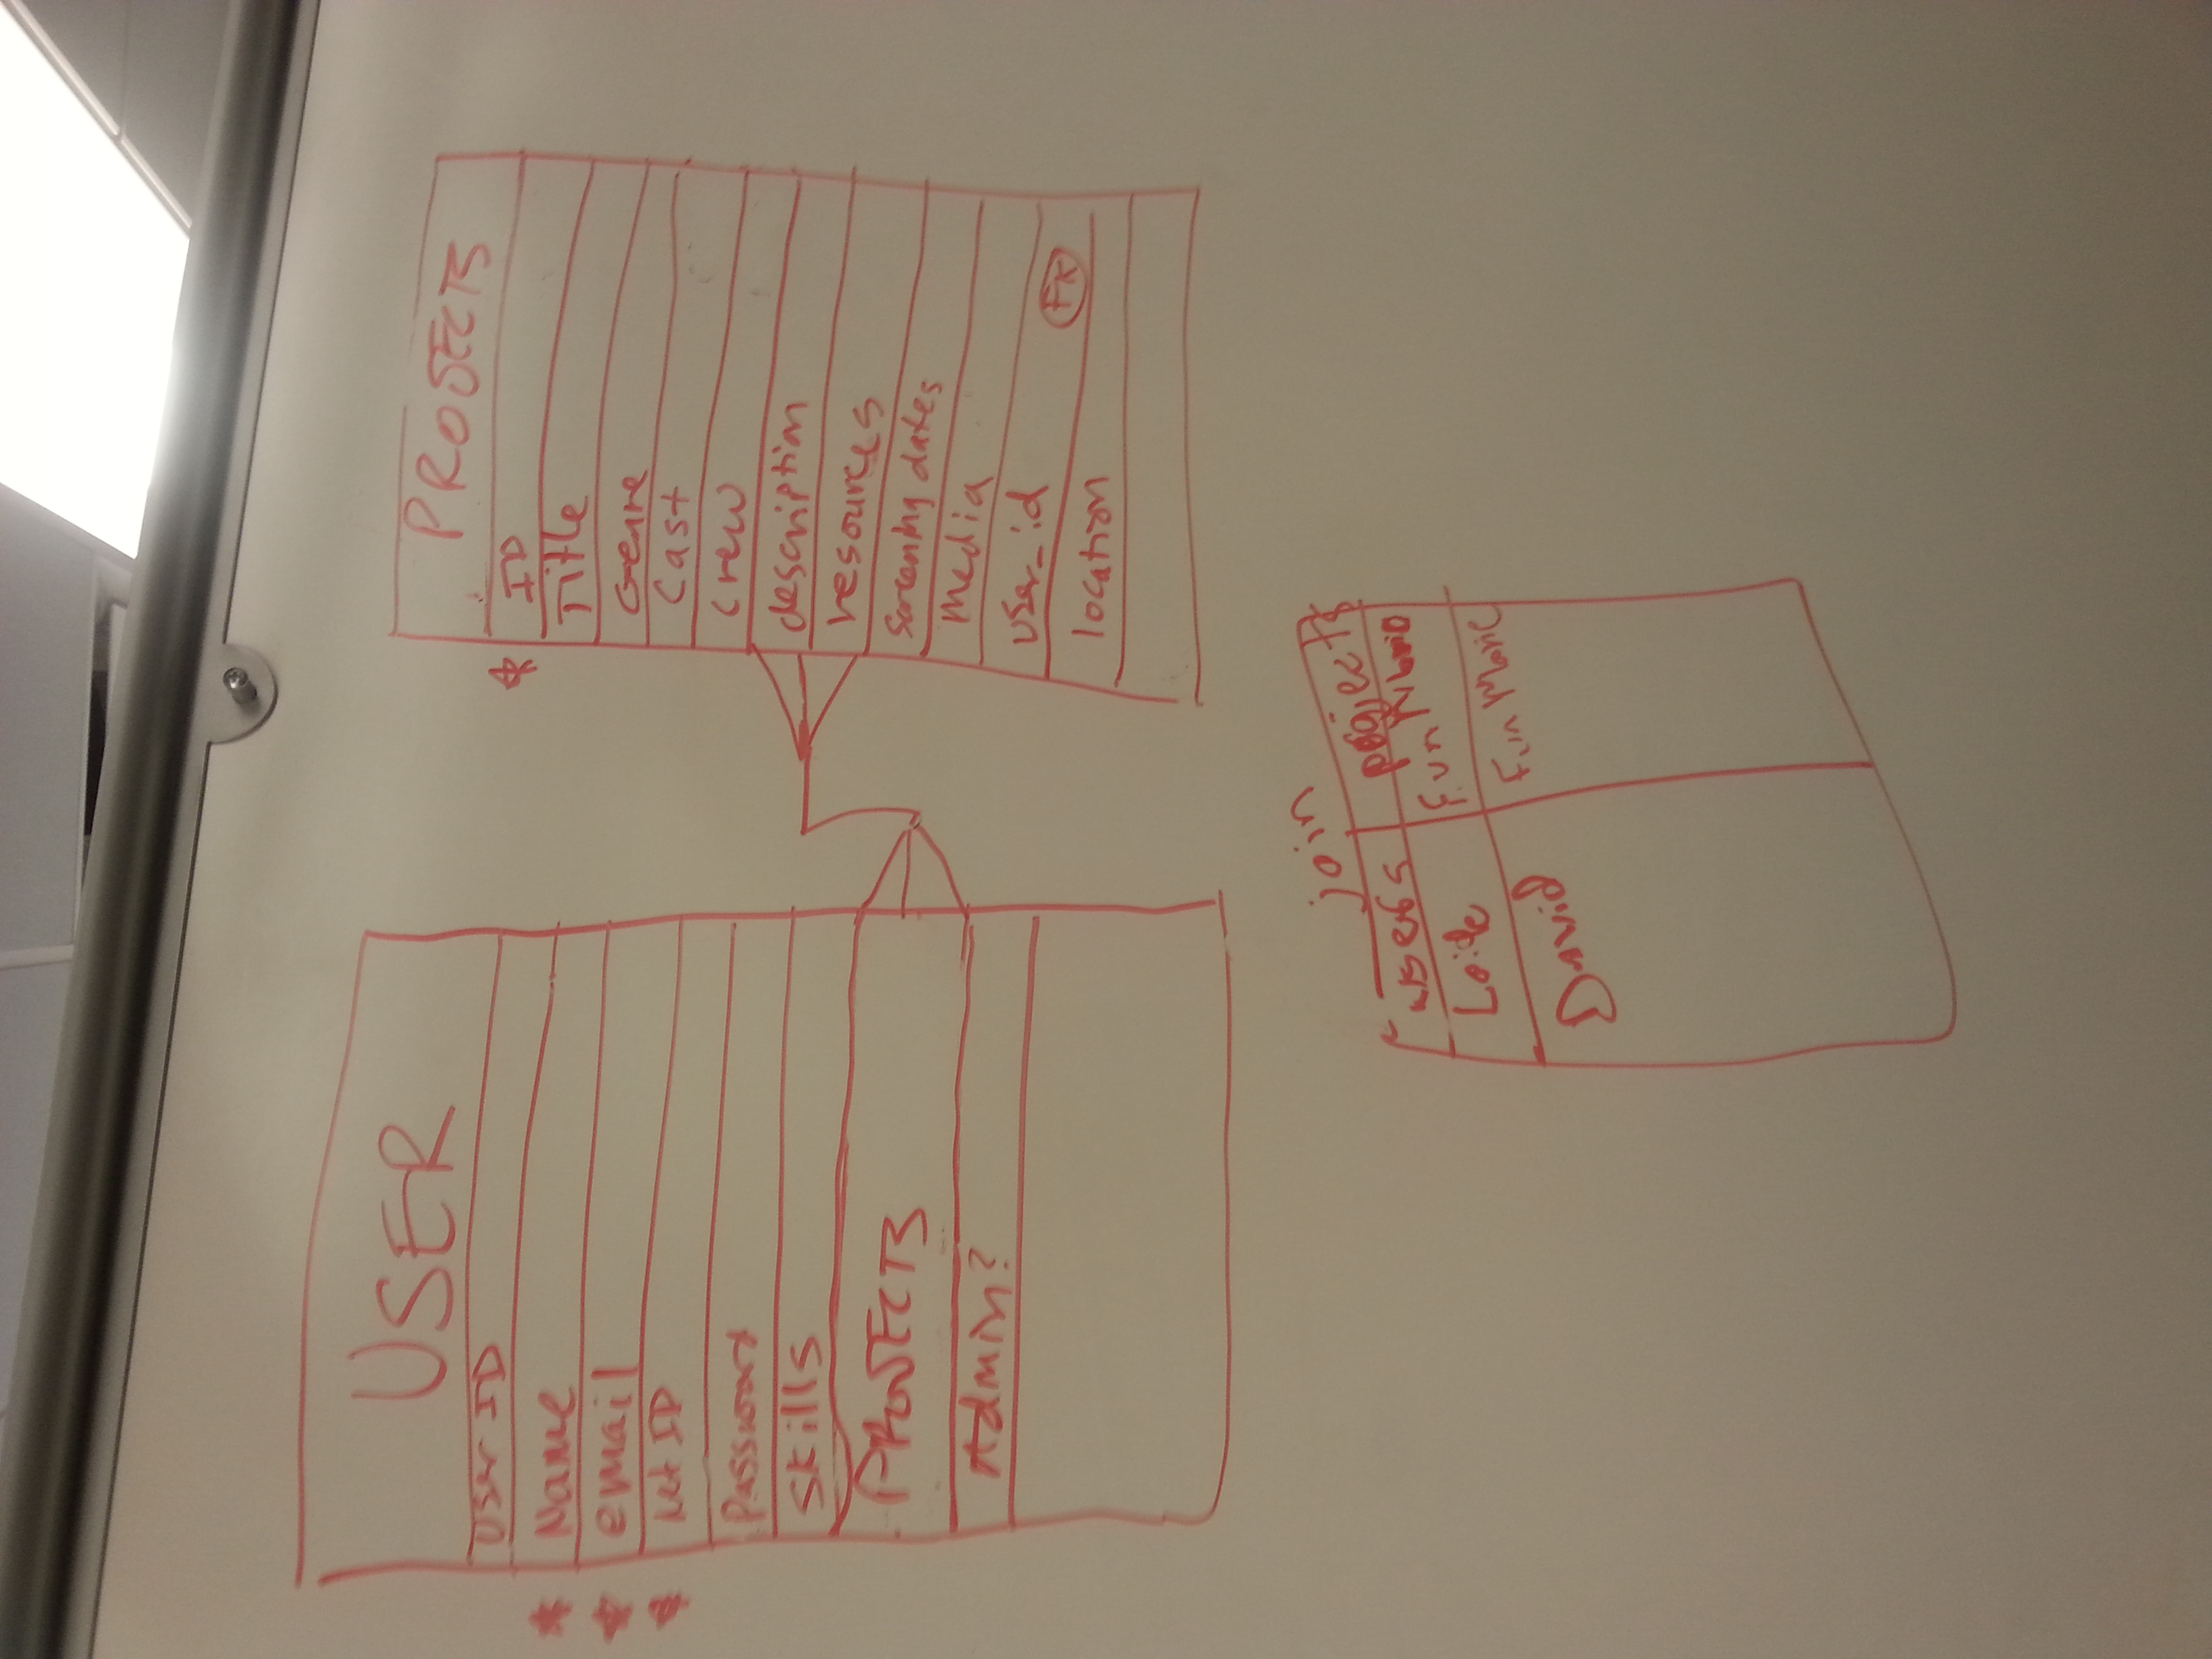 USER
User ID
* Name
* email
* Net ID
Password
Skills
PROJECTS
Admin?
PROJECTS
* ID
Title
Genre
Cast
Crew
description
resources
Screening dates
media
user_id
FK
location
join
users projects
Fun
David Fun Movie